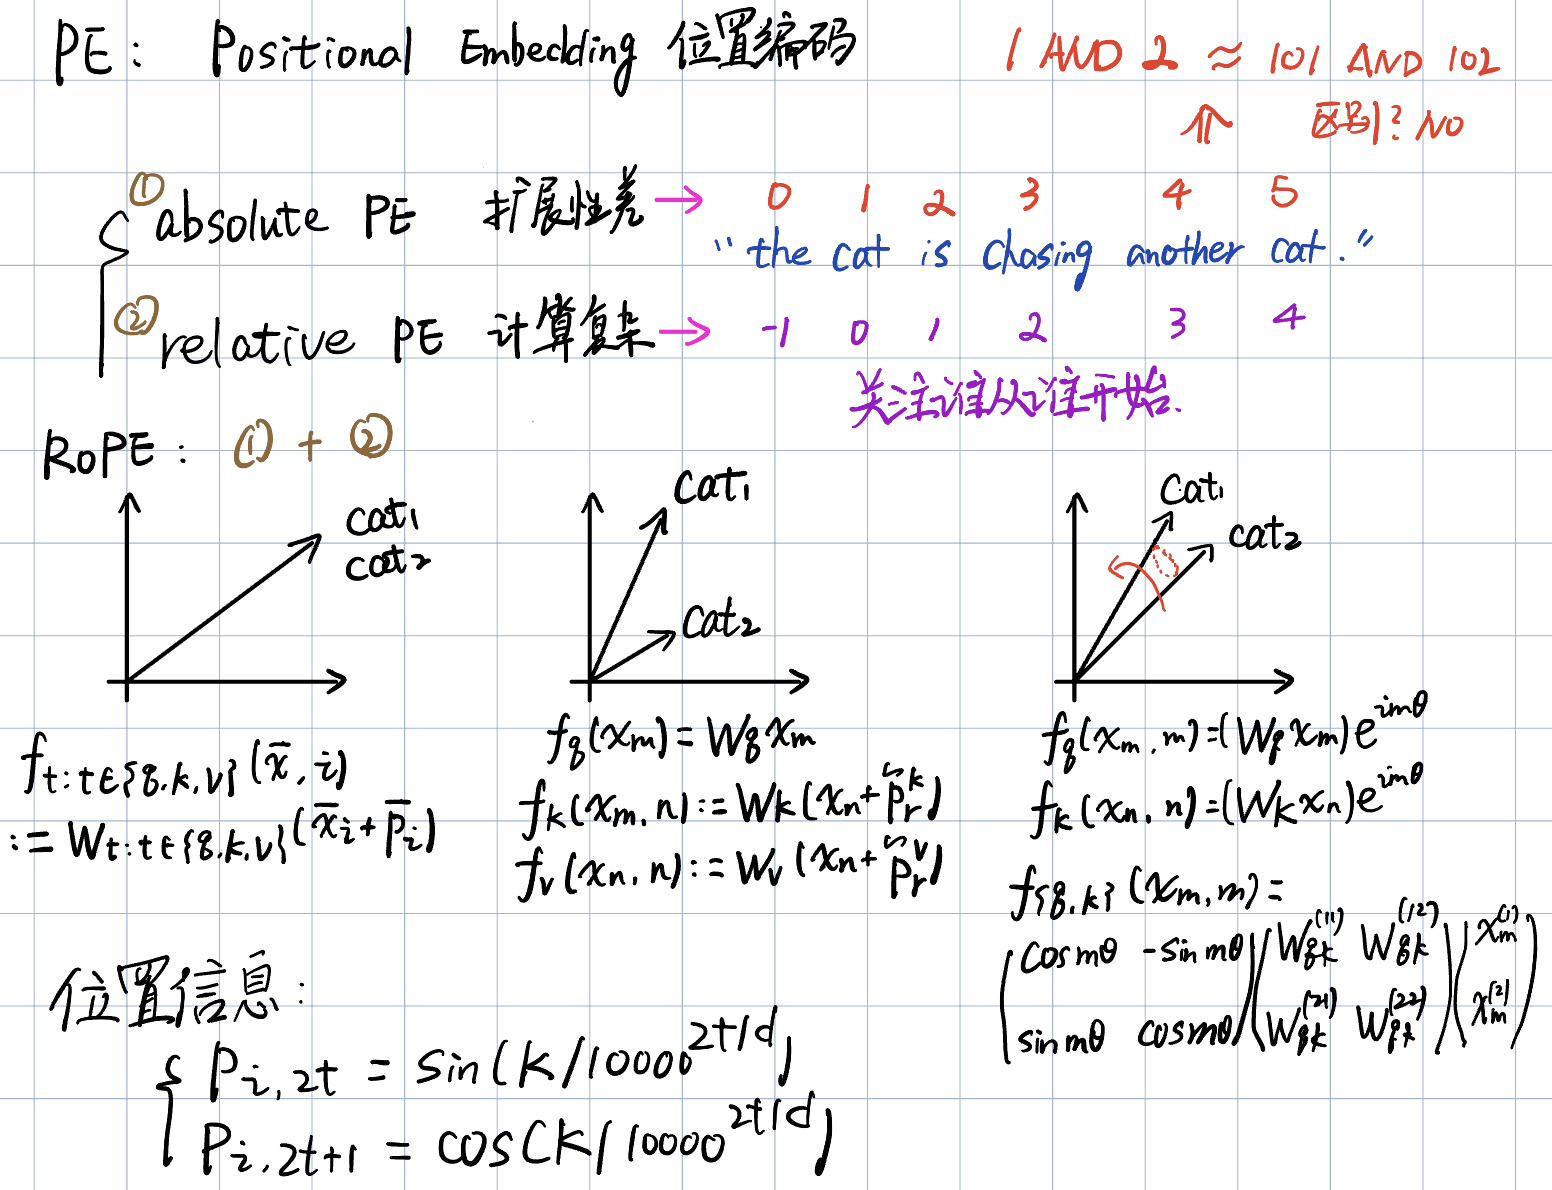 PE: Positional Embedding 位置编码
1 AND 2 ≈ 101 AND 102
⇑ 区别? NO
① absolute PE 扩展性差 → 0 1 2 3 4 5
"the cat is chasing another cat."
② relative PE 计算复杂 → -1 0 1 2 3 4
关注谁从谁开始.
RoPE: ① + ②
cat₁
cat₂
cat₁
cat₂
cat₁
cat₂
f_{t:t∈{q.k.v}}(x̄, i)
:= W_{t:t∈{q.k.v}}(x̄_i + p̄_i)
f_q(x_m) = W_q x_m
f_k(x_m, n) := W_k(x_n + p̃_r^k)
f_v(x_n, n) := W_v(x_n + p̃_r^v)
f_q(x_m, m) = (W_q x_m)e^{imθ}
f_k(x_n, n) = (W_k x_n)e^{imθ}
f_{q.k}(x_m, m) =
(cos mθ -sin mθ) (W_{qk}^{(11)} W_{qk}^{(12)}) (x_m^{(1)})
(sin mθ cos mθ) (W_{qk}^{(21)} W_{qk}^{(22)}) (x_m^{(2)})
位置信息:
{ P_{i,2t} = sin(k/10000^{2t/d})
P_{i,2t+1} = cos(k/10000^{2t/d})